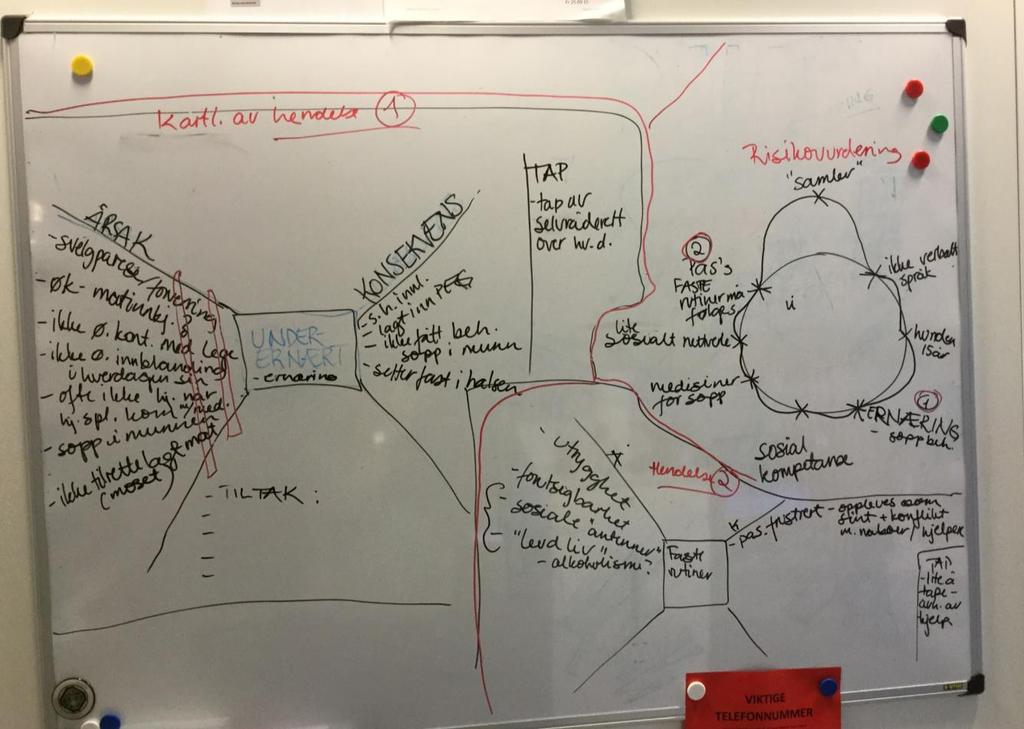 Kartl. av hendelse 1
ÅRSAK
- svelgparese/forverring
- ØK - matinnkj. &
- ikke ø. kont. med lege
- ikke ø. innblanding
i hverdagen sin
- ofte ikke hj. når
hj.spl. kom m/med.
- sopp i munnen
- ikke tilrettelagt mat
(moset)
UNDER-
ERNÆRT
- ernæring
KONSEKVENS
- s.h. innl.
- lagt inn PEG
- ikke fått beh.
sopp i munn
- setter fast i halsen
- TILTAK :
TAP
- tap av
selvråderett
over hv.d.
Risikovurdering
"samler"
ikke verbalt
språk
hunden
Isar
1
ERNÆRING
- sopp beh.
sosial
kompetanse
medisiner
for sopp
lite
sosialt nettverk
2
Pas's
FASTE
rutiner må
følges
Hendelse 2
Å
- utrygghet
- forutsigbarhet
- sosiale "antenner"
- "levd liv"
- alkoholisme?
Faste
rutiner
K
- pas. frustrert - oppleves som
sint + konflikt
m. naboer/hjelper
TAP
- lite å
tape -
avh. av
hjelp
VIKTIGE
TELEFONNUMMER